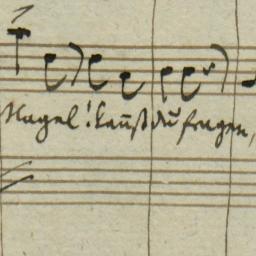 Nagel! kannst du fragen,